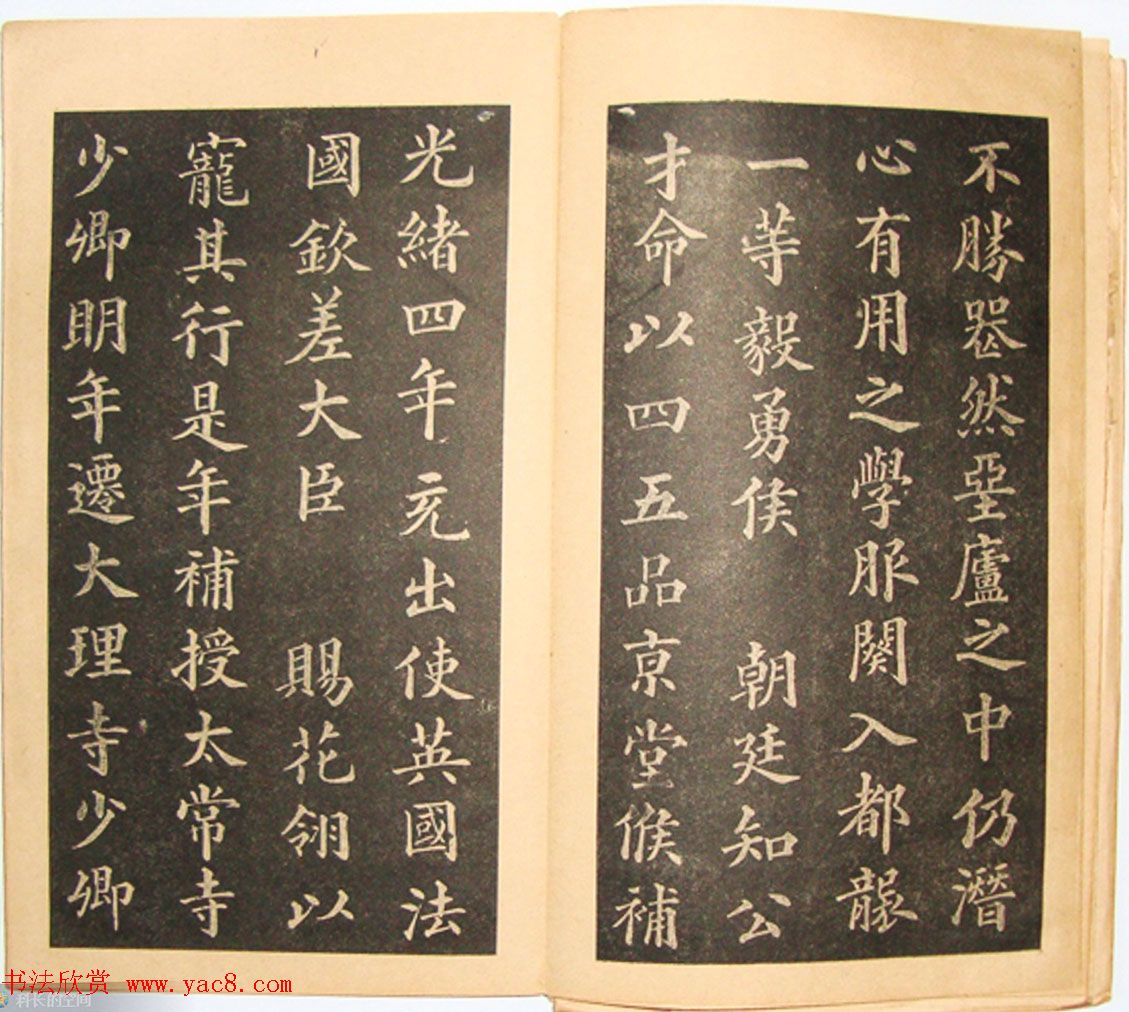 不勝器然堊廬之中仍潛
心有用之學服闋入都襲
一等毅勇侯　朝廷知公
才命以四五品京堂候補
光緒四年充出使英國法
國欽差大臣　賜花翎以
寵其行是年補授太常寺
少卿明年遷大理寺少卿
书法欣赏 www.yac8.com
科长的空间